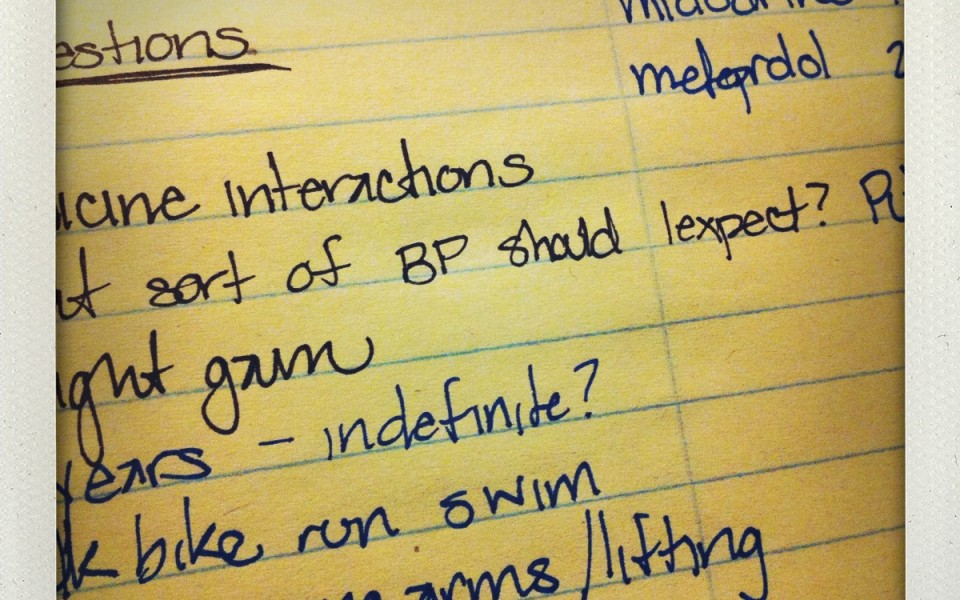 estions
metoprdol 2
icine interactions
at sort of BP should I expect? Pu
ight gain
years - indefinite?
lk bike run swim
arms/lifting